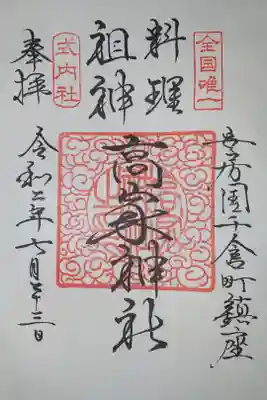 全国唯一
安房国千倉町鎮座
料理
祖神
高家神社
式内社
奉拝
令和二年七月二十三日